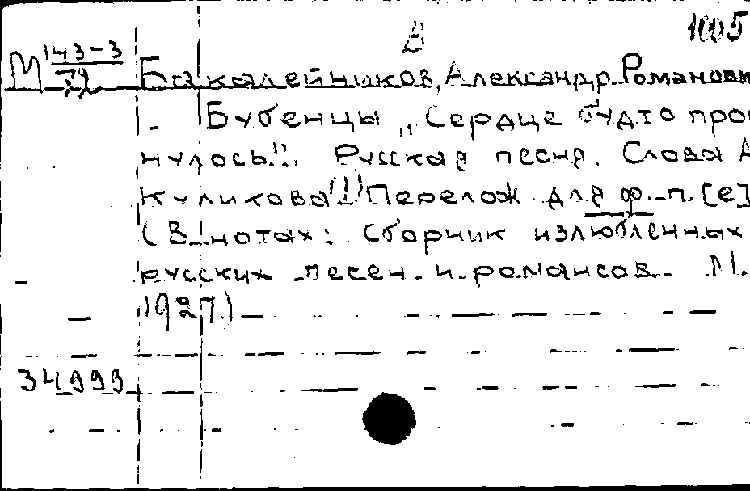 В 1005
М 143-3
Бакалейников, Александр Романови
Бубенцы „Сердце будто прос
нулось". Русская песня. Слова А
Куликова(!) Перелож. для ф.-п. [e]
(В нотах: Сборник излюбленных
русских песен и романсов. М.
1927)
34999